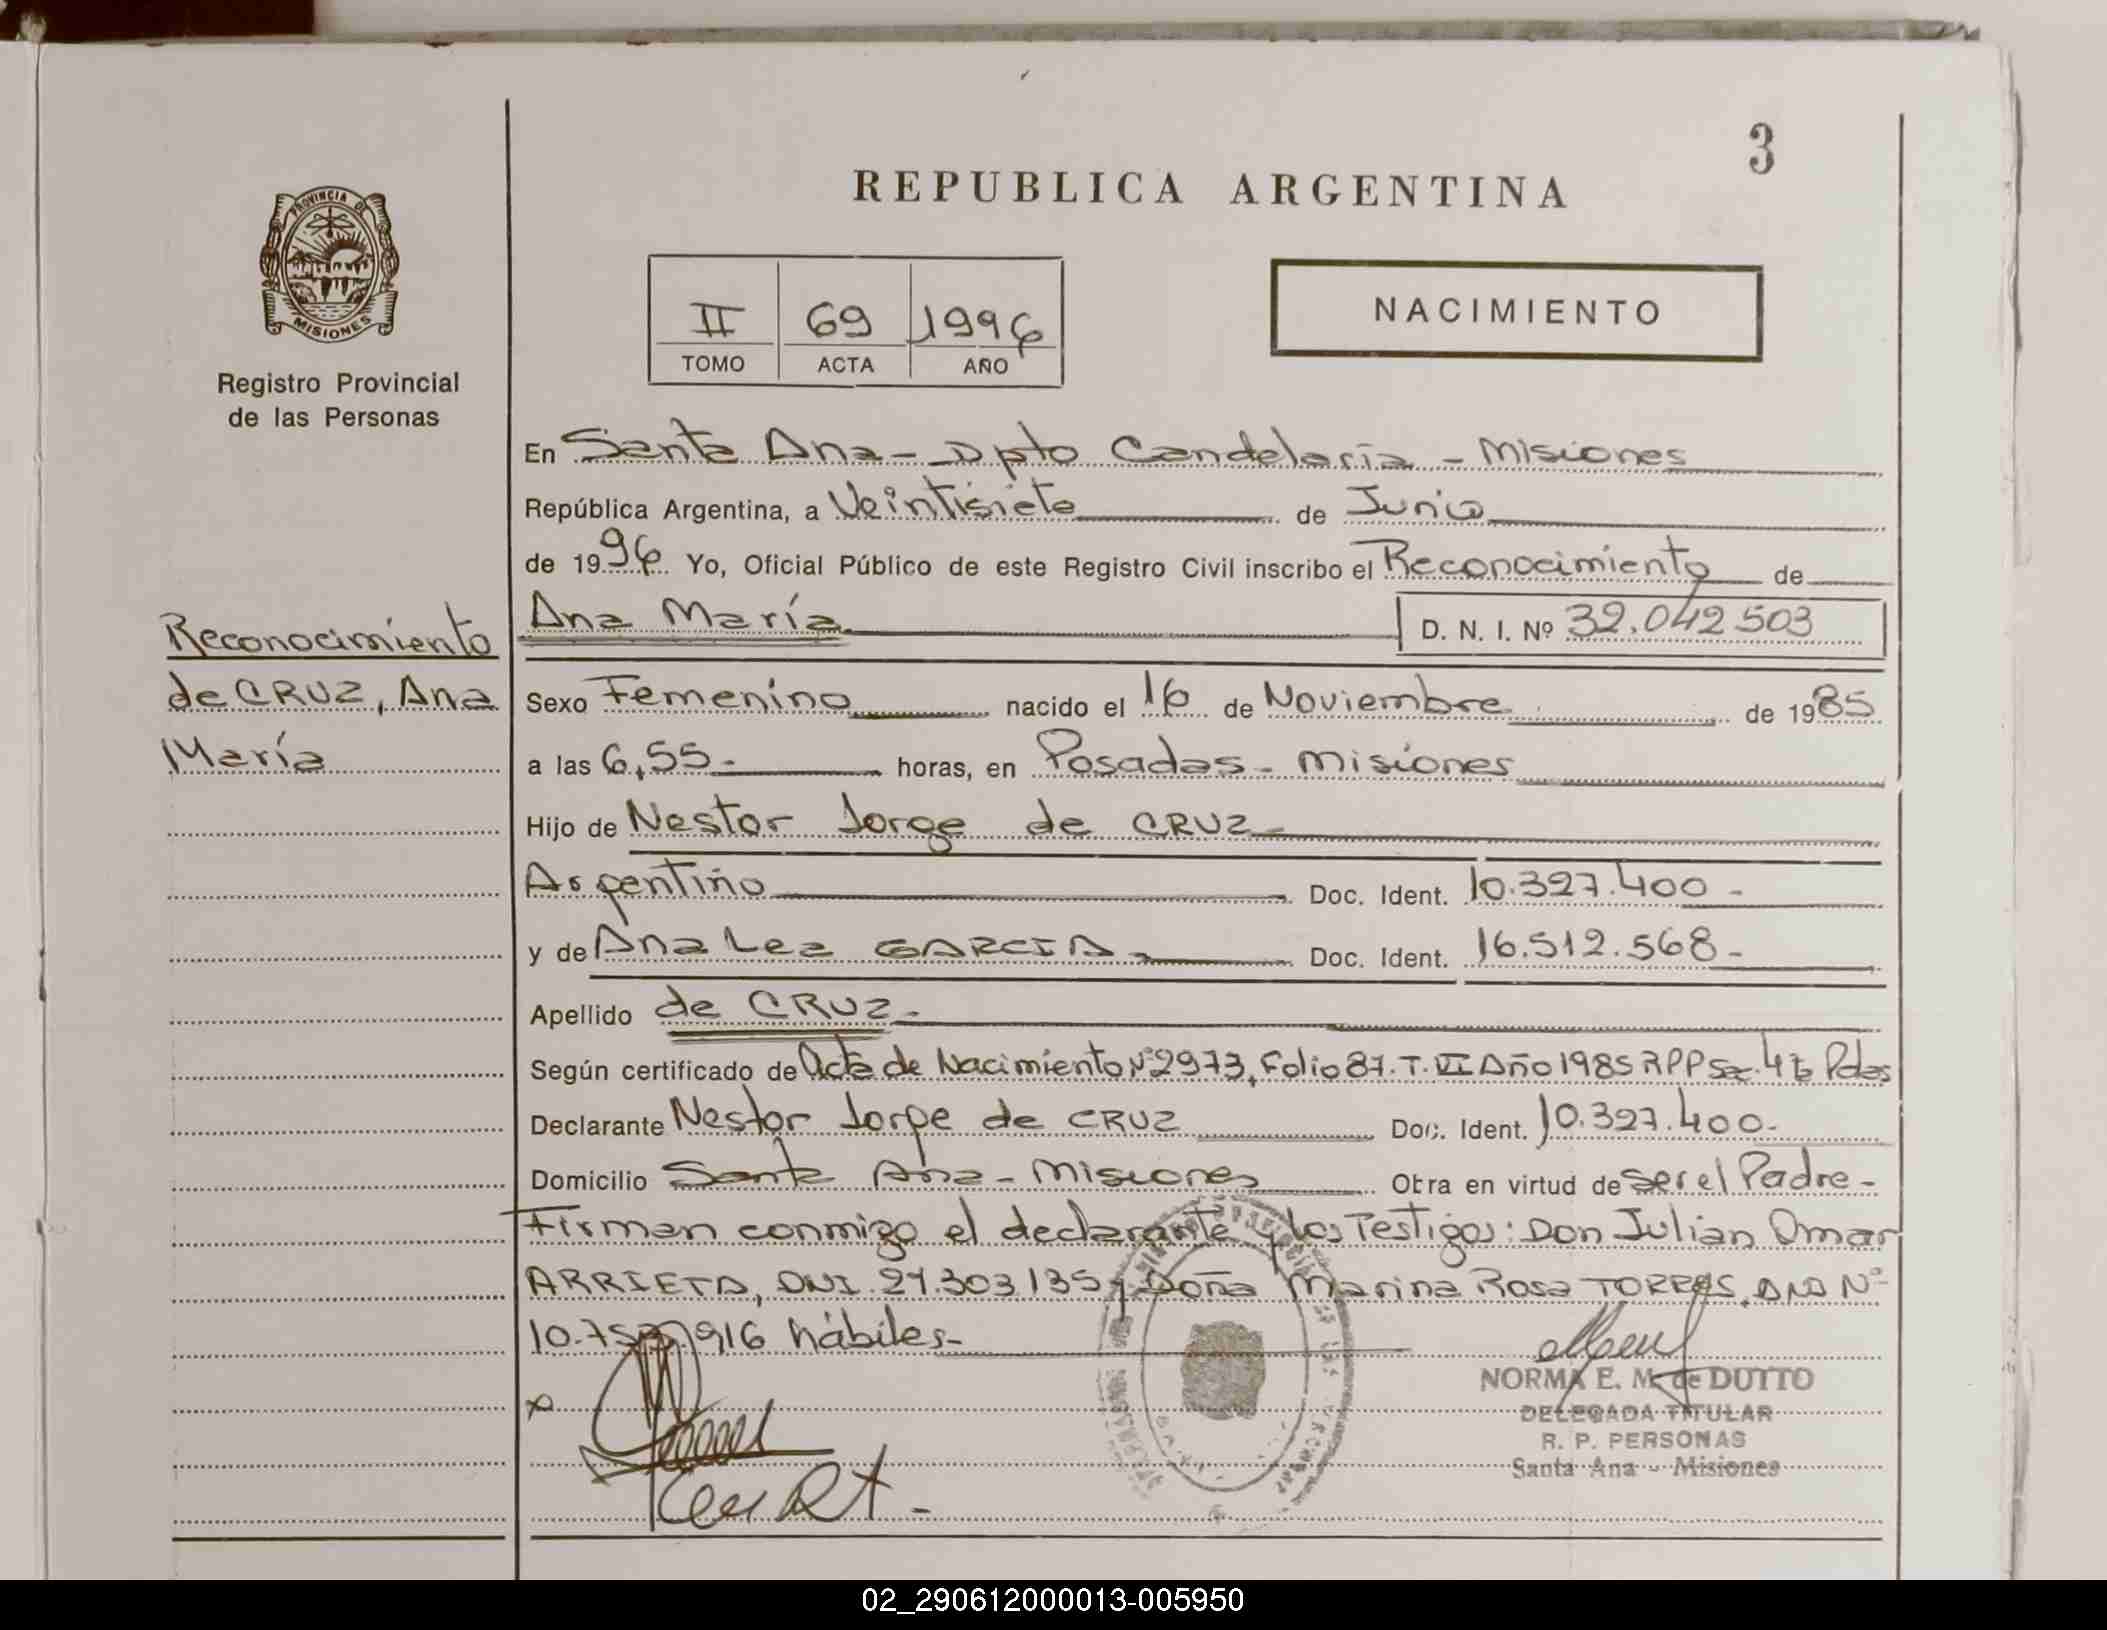 3
REPUBLICA ARGENTINA
PROVINCIA DE
MISIONES
Registro Provincial
de las Personas
II 69 1996
TOMO ACTA AÑO
NACIMIENTO
En Santa Ana - Dpto Candelaria - Misiones
República Argentina, a Veintisiete de Junio
de 1996 Yo, Oficial Público de este Registro Civil inscribo el Reconocimiento de
Ana María D. N. I. Nº 32.042503
Reconocimiento
de CRUZ, Ana
María
Sexo Femenino nacido el 16 de Noviembre de 1985
a las 6,55- horas, en Posadas - Misiones
Hijo de Nestor Jorge de CRUZ-
Argentino Doc. Ident. 10.327.400-
y de Ana Lea GARCIA- Doc. Ident. 16.512.568-
Apellido de CRUZ-
Según certificado de Acta de Nacimiento Nº 2973, Folio 87. T. VI Año 1985 RPP Sec. 4ta Pdas
Declarante Nestor Jorge de CRUZ Doc. Ident. 10.327.400-
Domicilio Santa Ana - Misiones Obra en virtud de ser el Padre-
Firman conmigo el declarante y los Testigos: Don Julian Omar
ARRIETA, DNI. 27.303.135 y Doña Marina Rosa TORRES, DNI Nº
916 hábiles-
NORMA E. M. de DUTTO
DELEGADA TITULAR
R. P. PERSONAS
Santa Ana - Misiones
02_290612000013-005950